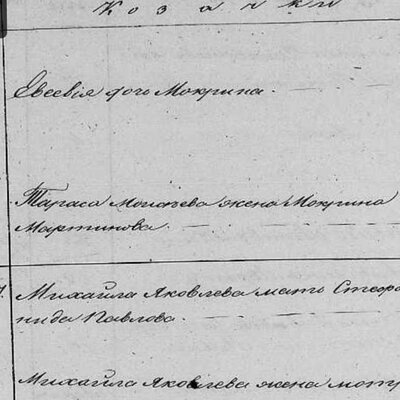 Козачки
Евсевія дочь Мокрина.
Тараса Мойсеева жена Мокрина
Мартинова.
Михайла Яковлева мать Стефа
нида Павлова.
Михайла Яковлева жена